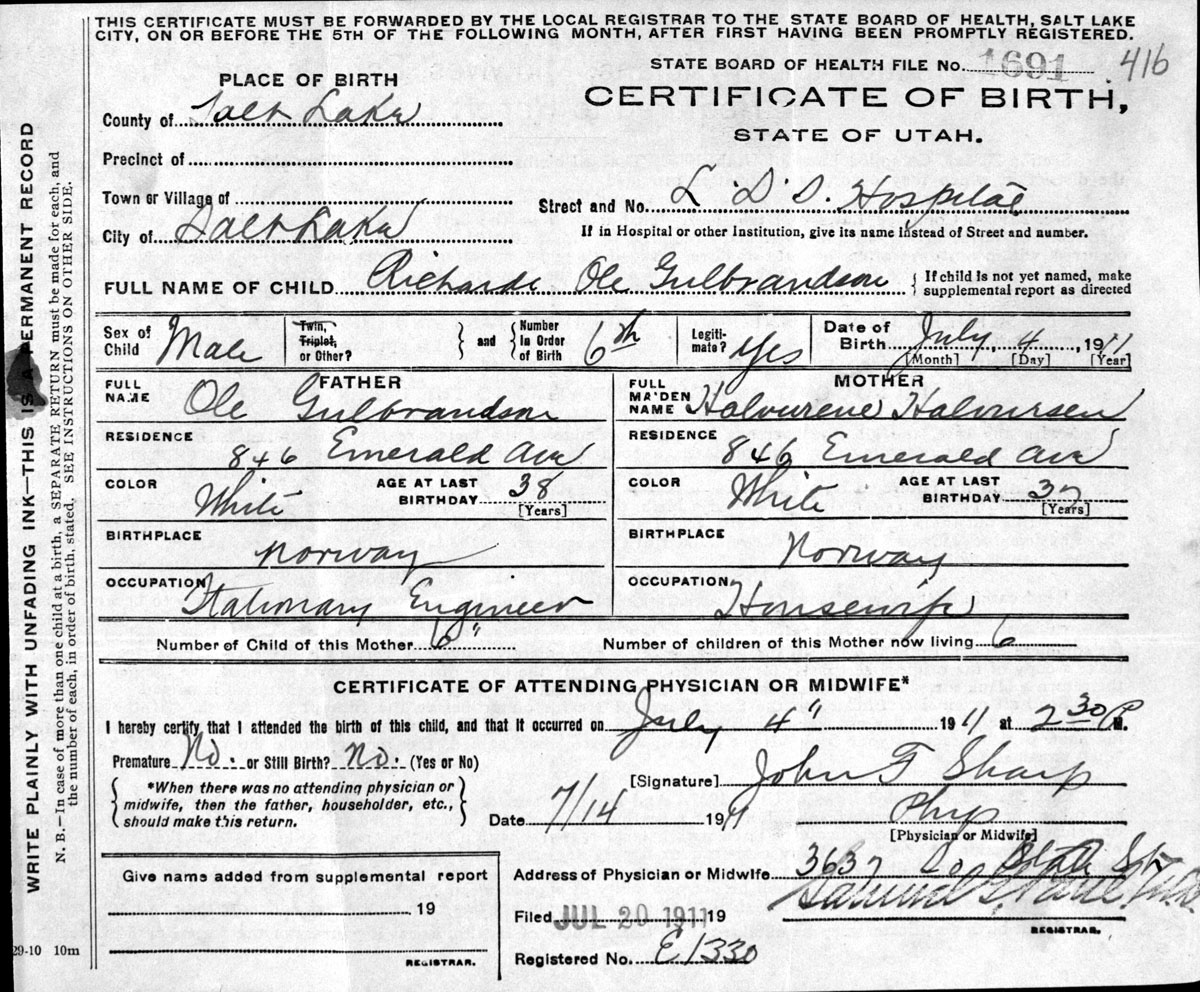 THIS CERTIFICATE MUST BE FORWARDED BY THE LOCAL REGISTRAR TO THE STATE BOARD OF HEALTH, SALT LAKE
CITY, ON OR BEFORE THE 5TH OF THE FOLLOWING MONTH, AFTER FIRST HAVING BEEN PROMPTLY REGISTERED.
STATE BOARD OF HEALTH FILE No. 1691 416
PLACE OF BIRTH
CERTIFICATE OF BIRTH,
STATE OF UTAH.
County of Salt Lake
Precinct of
Town or Village of
City of Salt Lake
Street and No. L. D. S. Hospital
If in Hospital or other Institution, give its name instead of Street and number.
FULL NAME OF CHILD Richards Ole Gulbrandson
{ If child is not yet named, make
supplemental report as directed
Sex of Child Male
Twin, Triplet, or Other? } and { Number In Order of Birth 6th
Legiti-mate? Yes
Date of Birth July 4 1911
[Month] [Day] [Year]
FATHER
FULL NAME Ole Gulbrandson
RESIDENCE 846 Emerald Ave
COLOR White AGE AT LAST BIRTHDAY 38 [Years]
BIRTHPLACE Norway
OCCUPATION Stationary Engineer
MOTHER
FULL MAIDEN NAME Halvurene Halvursen
RESIDENCE 846 Emerald Ave
COLOR White AGE AT LAST BIRTHDAY 37 [Years]
BIRTHPLACE Norway
OCCUPATION Housewife
Number of Child of this Mother 6" Number of children of this Mother now living 6
CERTIFICATE OF ATTENDING PHYSICIAN OR MIDWIFE*
I hereby certify, that I attended the birth of this child, and that it occurred on July 4" 1911 at 2 30 P M.
Premature No. or Still Birth? No. (Yes or No)
{ *When there was no attending physician or
midwife, then the father, householder, etc.,
should make this return. }
[Signature] John F Sharp
Date 7/14 1911 Phys
[Physician or Midwife]
Address of Physician or Midwife 3637 So State St
Filed JUL 20 1911 19
REGISTRAR.
Registered No. E1330
Give name added from supplemental report
19
REGISTRAR.
WRITE PLAINLY WITH UNFADING INK—THIS IS A PERMANENT RECORD
N. B.—In case of more than one child at a birth, a SEPARATE RETURN must be made for each, and
the number of each, in order of birth, stated. SEE INSTRUCTIONS ON OTHER SIDE.
29-10 10m